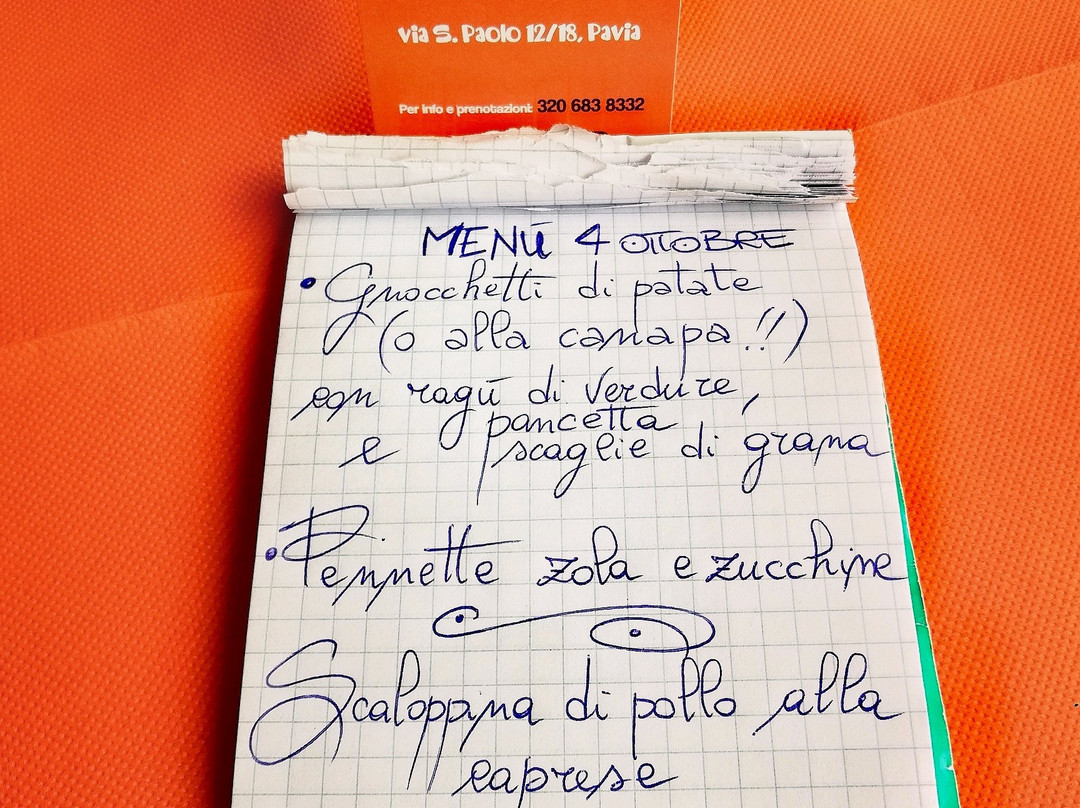 via S. Paolo 12/18, Pavia
Per info e prenotazioni: 320 683 8332
MENÙ 4 OTTOBRE
• Gnocchetti di patate
(o alla canapa!!)
con ragù di verdure,
pancetta
e scaglie di grana
• Pennette zola e zucchine
Scaloppina di pollo alla
caprese